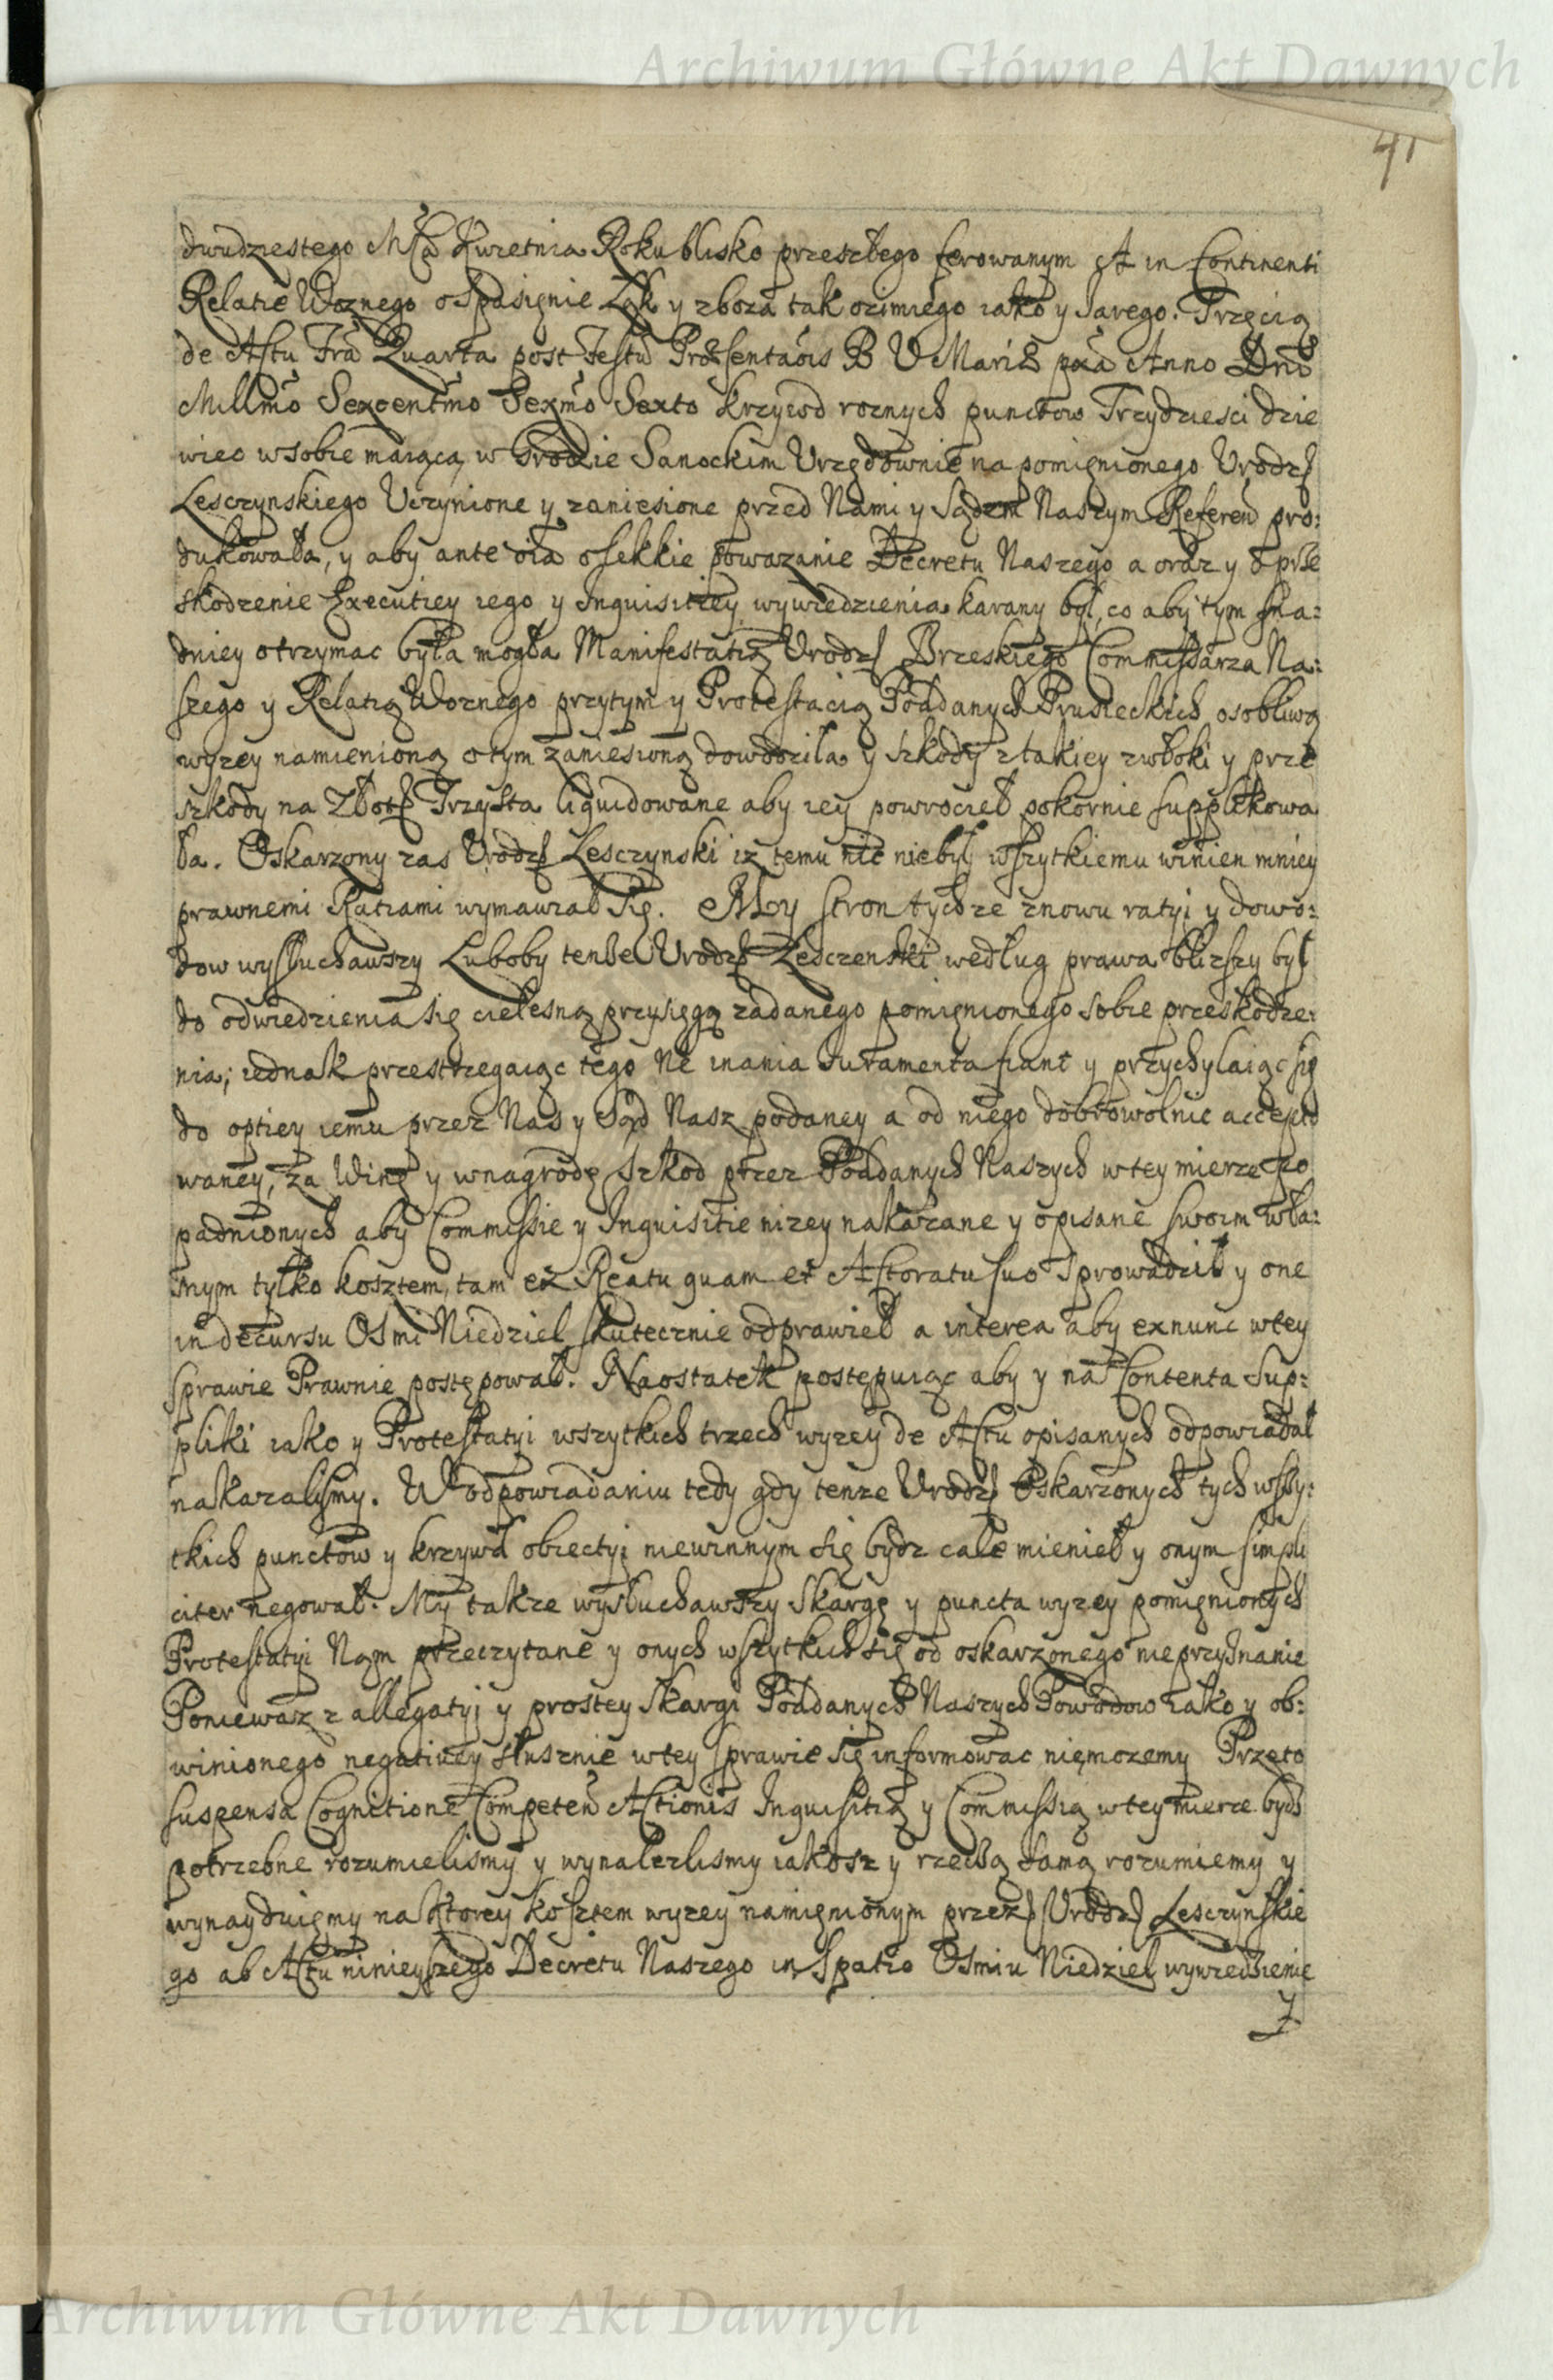 Archiwum Główne Akt Dawnych
41
dwudziestego Mca Kwietnia Roku blisko przeszłego ferowanym A in Continenti
Relatie Woznego o spasienie Łąk y zboza tak ozimiego iako y Jarego. Trzecią
de Actu Fra Quarta post Festu Præsentaois B V Mariæ pxa Anno Dni
Millmo Sexcentmo Sexmo Sexto krzywd roznych punctow Trzydziesci dzie
wiec w sobie maiącą w Grodzie Sanockim Urzędownie na pomienionego Urodz
Lesczynskiego Uczynione y zaniesione przed Nami y Sądem Naszym Referen pro:
dukowała, y aby ante oia o lekkie powazanie Decretu Naszego a oraz y o prze
skodzenie Executiey iego y Inquisitiey wywiedzienia karany był, co aby tym sna:
dniey otrzymac była mogła Manifestatią Urodz Brzeskiego Commissarza Na:
szego y Relatią Woznego przytym y Protestacią Poddanych Prusieckich osobliwą
wyzey namienioną o tym zaniesioną dowodziła y szkody z takiey zwłoki y prze
szkody na Złot Trzysta liquidowane aby iey powrocieł pokornie supplikowa
ła. Oskarzony zas Urodz Lesczynski iz temu nic niebył wszytkiemu winien mniey
prawnemi Ratiami wymawiał się. A My stron tychze znowu ratyi y dowo:
dow wysłuchawszy Luboby tenże Urodz Lesczenski według prawa blizszy był
do odwiedzienia się cielesną przysięgą zadanego pomienionego sobie przeskodze:
nia; iednak przestrzegaiąc tego Ne inania Juramenta fiant y przychylaiąc się
do optiey iemu przez Nas y Sąd Nasz podaney a od niego dobrowolnie accepto
waney, za Winę y w nagrodę szkod przez Poddanych Naszych w tey mierze po
padnionych aby Commissie y Inquisitie nizey nakazane y opisane swoim wła:
snym tylko kosztem, tam ex Reatu quam et Actoratu suo sprowadził y one
in decursu Osmi Niedziel skutecznie odprawieł a interea aby exnunc w tey
sprawie Prawnie postępował. Naostatek postępuiąc aby y na Contenta Sup:
pliki iako y Protestatyi wszytkich trzech wyzey de Actu opisanych odpowiadał
nakazalismy. W odpowiadaniu tedy gdy tenze Urodz Oskarzonych tych wszy:
tkich punctow y krzywd obiectyi niewinnym się bydz cale mienieł y onym simpli
citer negował. My takze wysłuchawszy Skargę y puncta wyzey pomienionych
Protestatyi Nam przeczytane y onych wszytkich się od oskarzonego nieprzyznanie
Poniewaz z allegatyi y prostey skargi Poddanych Naszych Powodow iako y ob:
winionego negatiuey słusznie w tey sprawie się informowac niemozemy Przeto
suspensa Cognitione Competen Actionis Inquisitią y Commissią w tey mierze bydz
potrzebne rozumielismy y wynalezlismy iakosz y rzeczą samą rozumiemy y
wynayduięmy na ktorey kosztem wyzey namienionym przez Urodz Lesczynskie
go ab Actu ninieyszego Decretu Naszego in spatio Osmiu Niedziel wywiedzienie
y
Archiwum Główne Akt Dawnych